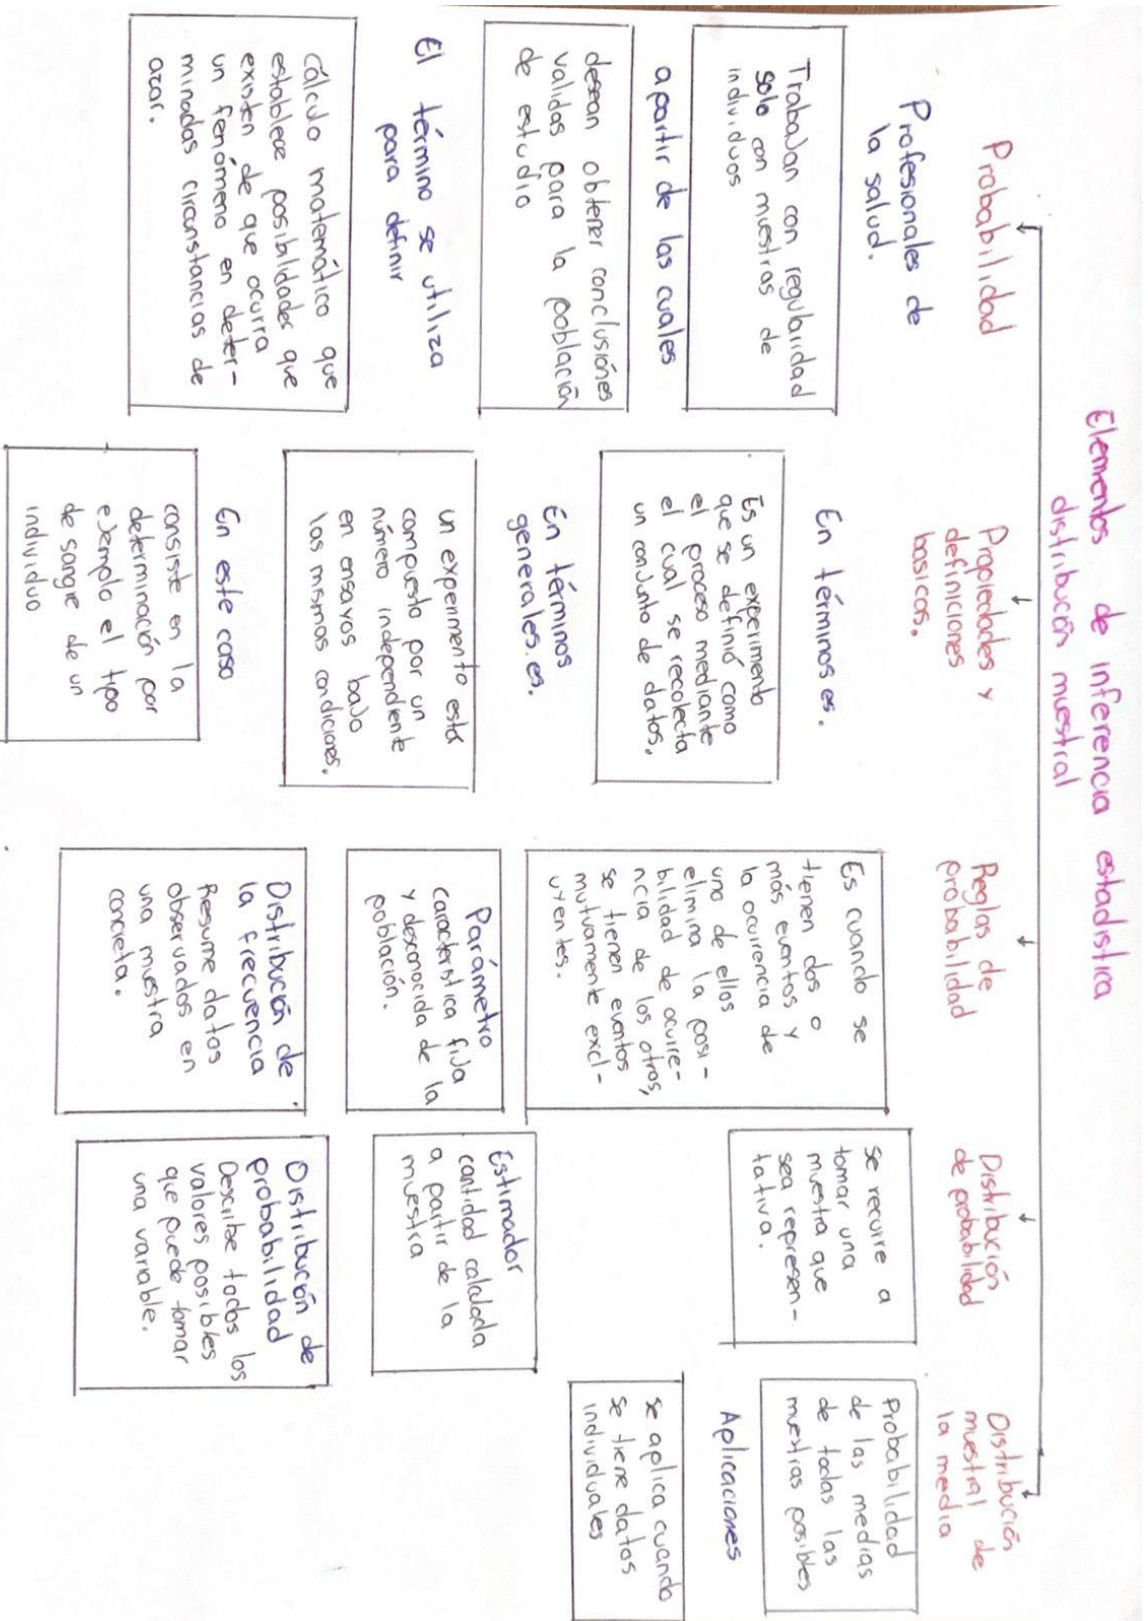 Elementos de inferencia estadistica
distribución muestral
Probabilidad
Profesionales de
la salud.
Trabajan con regularidad
solo con muestras de
individuos
apartir de las cuales
desean obtener conclusiónes
validas para la población
de estudio
El término se utiliza
para definir
Cálculo matemático que
establece posibilidades que
existen de que ocurra
un fenómeno en deter-
minadas circunstancias de
azar.
Propiedades y
definiciones
basicas.
En términos es.
Es un experimento
que se definió como
el proceso mediante
el cual se recolecta
un conjunto de datos,
En términos
generales. es.
un experimento está
compuesto por un
número independiente
en ensayos bajo
las mismas condiciones.
En este caso
consiste en la
determinación por
ejemplo el tipo
de sangre de un
individuo
Reglas de
probabilidad
Es cuando se
tienen dos o
más eventos y
la ocurrencia de
uno de ellos
elimina la posi-
bilidad de ocurre-
ncia de los otros,
se tienen eventos
mutuamente excl-
uyentes.
Parámetro
característica fija
y desconocida de la
población.
Distribución de
la frecuencia
Resume datos
observados en
una muestra
concreta.
Distribución
de probabilidad
se recurre a
tomar una
muestra que
sea represen-
tativa.
Estimador
cantidad calculada
a partir de la
muestra
Distribución de
probabilidad
Describe todos los
valores posibles
que puede tomar
una variable.
Distribución
muestral de
la media
Probabilidad
de las medias
de todas las
muestras posibles
Aplicaciones
se aplica cuando
se tiene datos
individuales